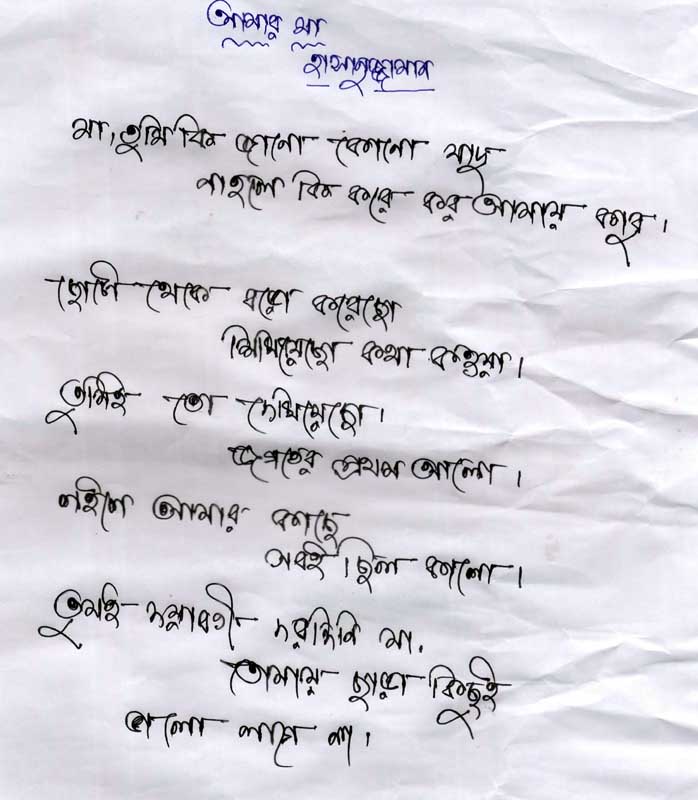 আমার মা
হাসানুজ্জোমান
মা, তুমি কি জানো কোনো যাদু
নাহলে কি করে কর আমায় কাবু।
ছোট থেকে বড়ো করেছো
শিখিয়েছো কথা কইয়া।
তুমিই তো দেখিয়েছো।
জগতের প্রথম আলো।
নইলে আমার কাছে
সবই ছিল কালো।
তুমই দয়াবতী দরদিনি মা,
তোমায় ছাড়া কিছুই
ভালো লাগে না।